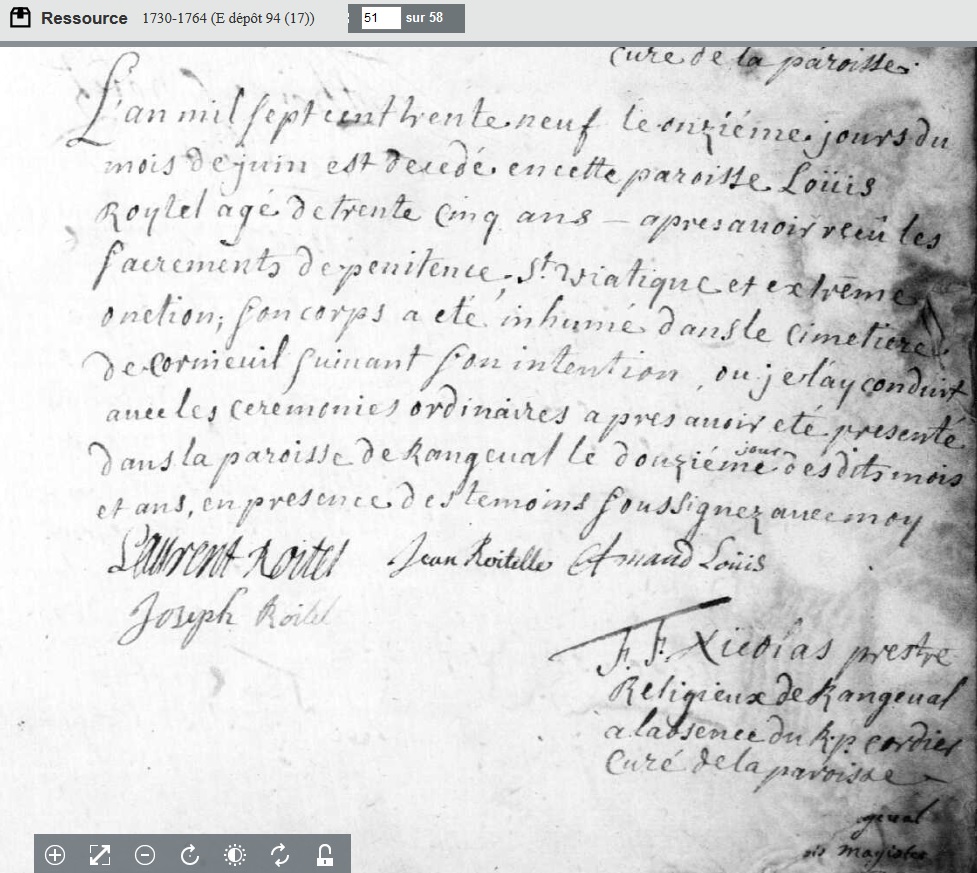 Ressource 1730-1764 (E dépôt 94 (17)) 51 sur 58
curé de la paroisse
L'an mil sept cent trente neuf le onziéme jours du
mois de juin est decedé en cette paroisse Loüis
Roytel agé de trente cinq ans — apres avoir reçû les
sacrements de penitence, St. viatique et extrême
onction; son corps a eté inhumé dans le cimetiere
de cornieuil suivant son intention, ou je l'ay conduit
avec les ceremonies ordinaires apres avoir eté presenté
dans la paroisse de Rangeval le douziéme jour des dits mois
et ans, en presence des temoins soussignez avec moy
Laurent Roitel Jean Roitelle Amand Loüis
Joseph Roitel
F. F. Nicolas prestre
Religieux de Rangeval
a l'absence du R. p. cordier
Curé de la paroisse
geval
Magister